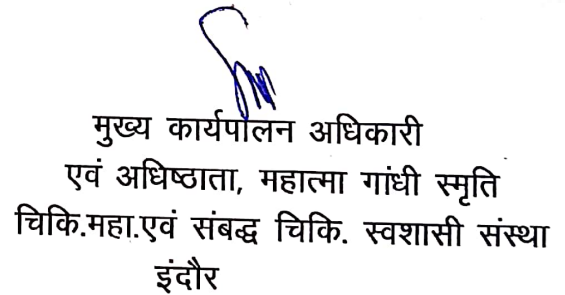 मुख्य कार्यपालन अधिकारी
एवं अधिष्ठाता, महात्मा गांधी स्मृति
चिकि.महा.एवं संबद्ध चिकि. स्वशासी संस्था
इंदौर